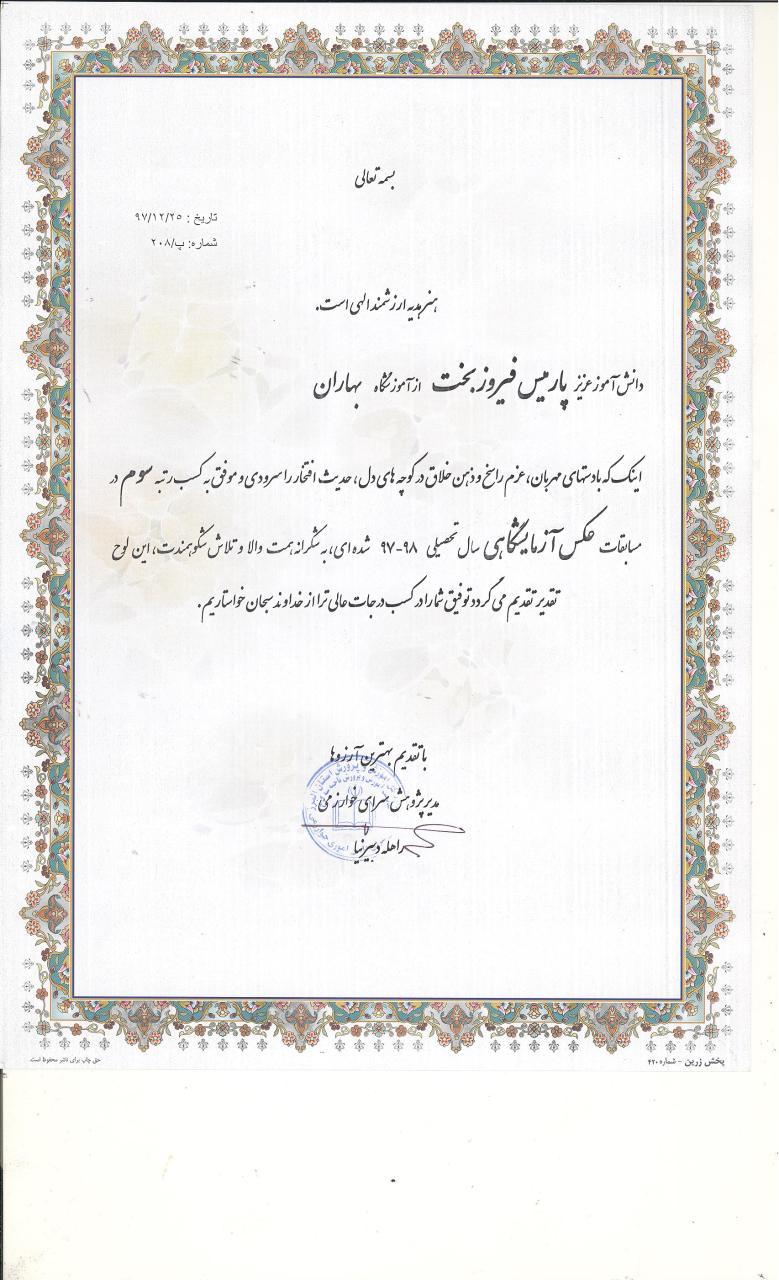 بسمه تعالی
تاریخ : ۹۷/۱۲/۲۵
شماره: پ/۲۰۸
هنر هدیه ارزشمند الهی است.
دانش آموز عزیز پارمیس فیروزبخت از آموزشگاه بهاران
اینک که با دستهای مهربان، عزم راسخ و ذهن خلاق در کوچه های دل، حدیث افتخار را سرودی و موفق به کسب رتبه سوم در
مسابقات عکس آزمایشگاهی سال تحصیلی ۹۸-۹۷ شده ای، به شکرانه همت والا و تلاش شکوهمندت، این لوح
تقدیر تقدیم می گردد توفیق شما را در کسب درجات عالی تر از خداوند سبحان خواستاریم.
با تقدیم بهترین آرزوها
مدیر پژوهش سرای خوارزمی
راهله دبیرنیا
پخش زرین - شماره ۴۲۰
حق چاپ برای ناشر محفوظ است.